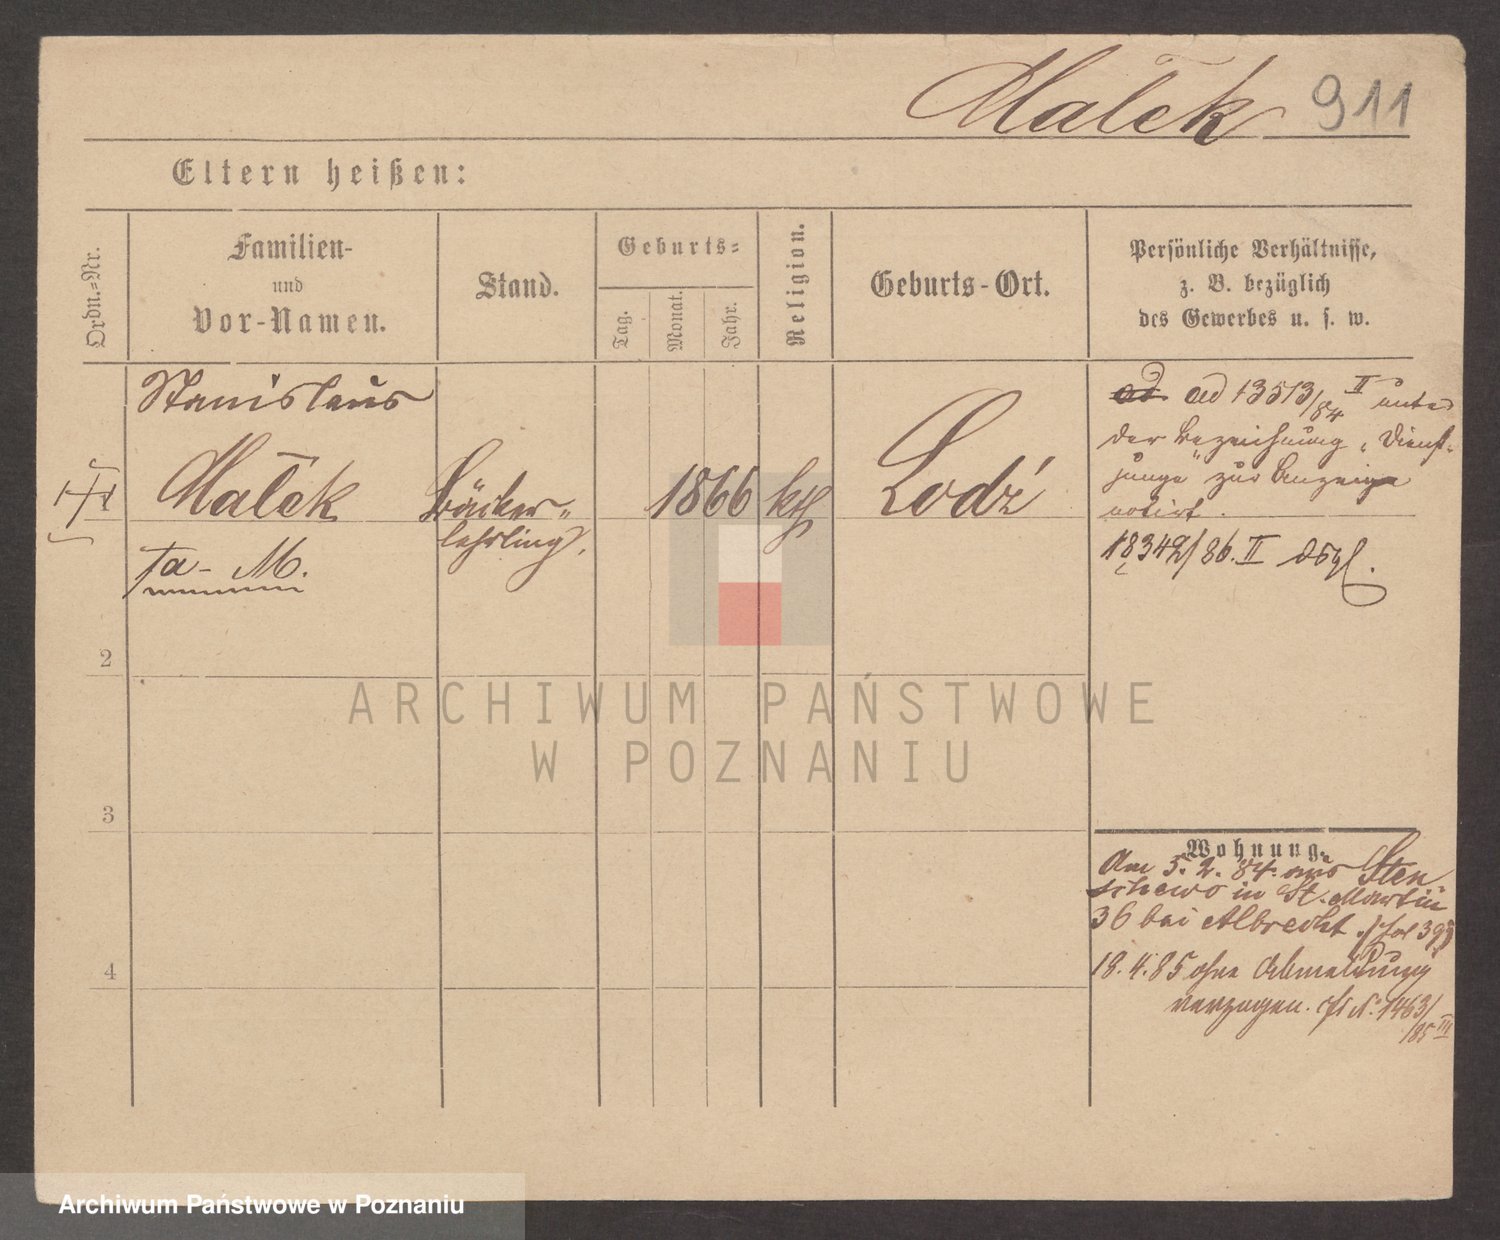 Malek 911
Eltern heißen:
Ordn.=Nr.
Familien-
und
Vor-Namen.
Stand.
Geburts=
Tag.
Monat.
Jahr.
Religion.
Geburts-Ort.
Persönliche Verhältnisse,
z. B. bezüglich
des Gewerbes u. s. w.
Stanislaus
Malek
M.
Bäcker„
lehrling,
1866
kth
Lodź
ad ad 13513/84 II unter
der Bezeichnung „Dienst-
junge" zur Anzeige
notirt.
18342/86. II dsgl.
2
3
4
Wohnung.
Am 5. 2. 84. aus Sten
schewo in St. Martin
36 bei Albrecht.
18. 4. 85 ohne Abmeldung
verzogen. N° 1463/
/85 III
ARCHIWUM PAŃSTWOWE
W POZNANIU
Archiwum Państwowe w Poznaniu